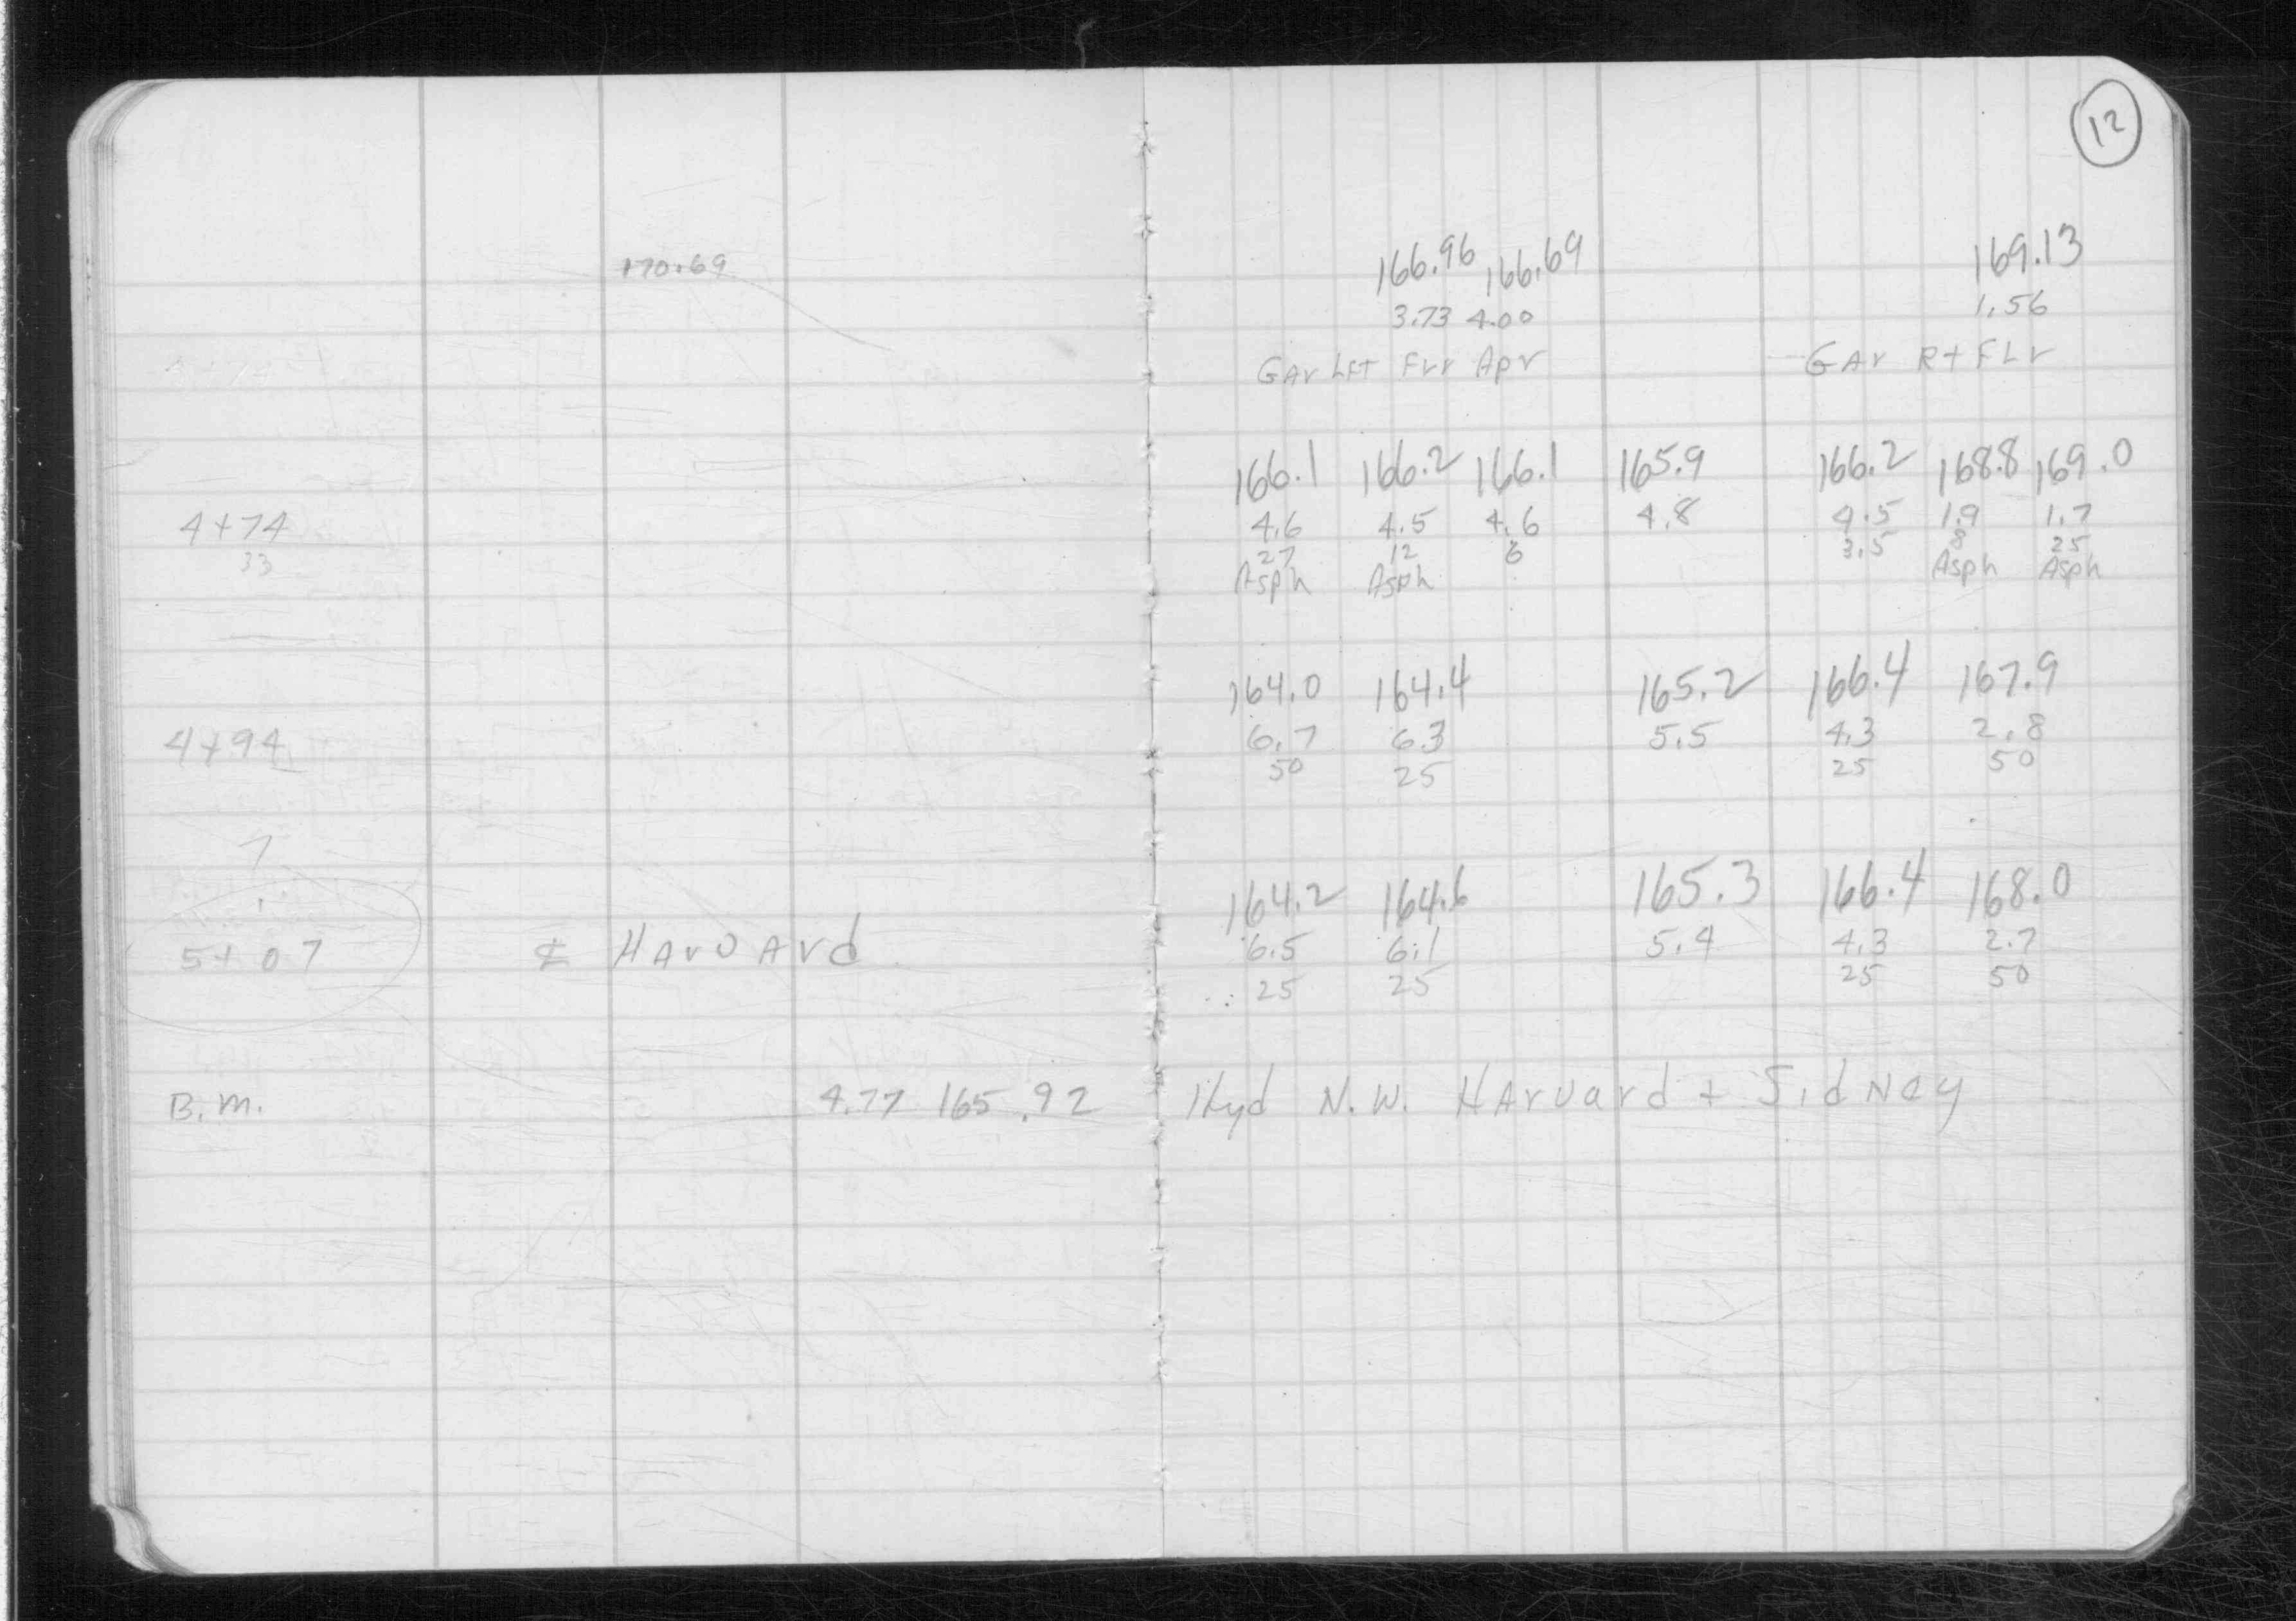 12
170.69 166.96 166.69 169.13
3.73 4.00 1.56
GAr LFT Flr Apr GAr Rt FLr
166.1 166.2 166.1 165.9 166.2 168.8 169.0
4+74 4.6 4.5 4.6 4.8 4.5 1.9 1.7
33 27 12 6 3.5 8 25
Asph Asph Asph Asph
164.0 164.4 165.2 166.4 167.9
4+94 6.7 6.3 5.5 4.3 2.8
50 25 25 50
7
164.2 164.6 165.3 166.4 168.0
5+07 ℄ HArvArd 6.5 6.1 5.4 4.3 2.7
25 25 25 50
B.M. 4.77 165.92 Hyd N.W. HArvard + SidNey